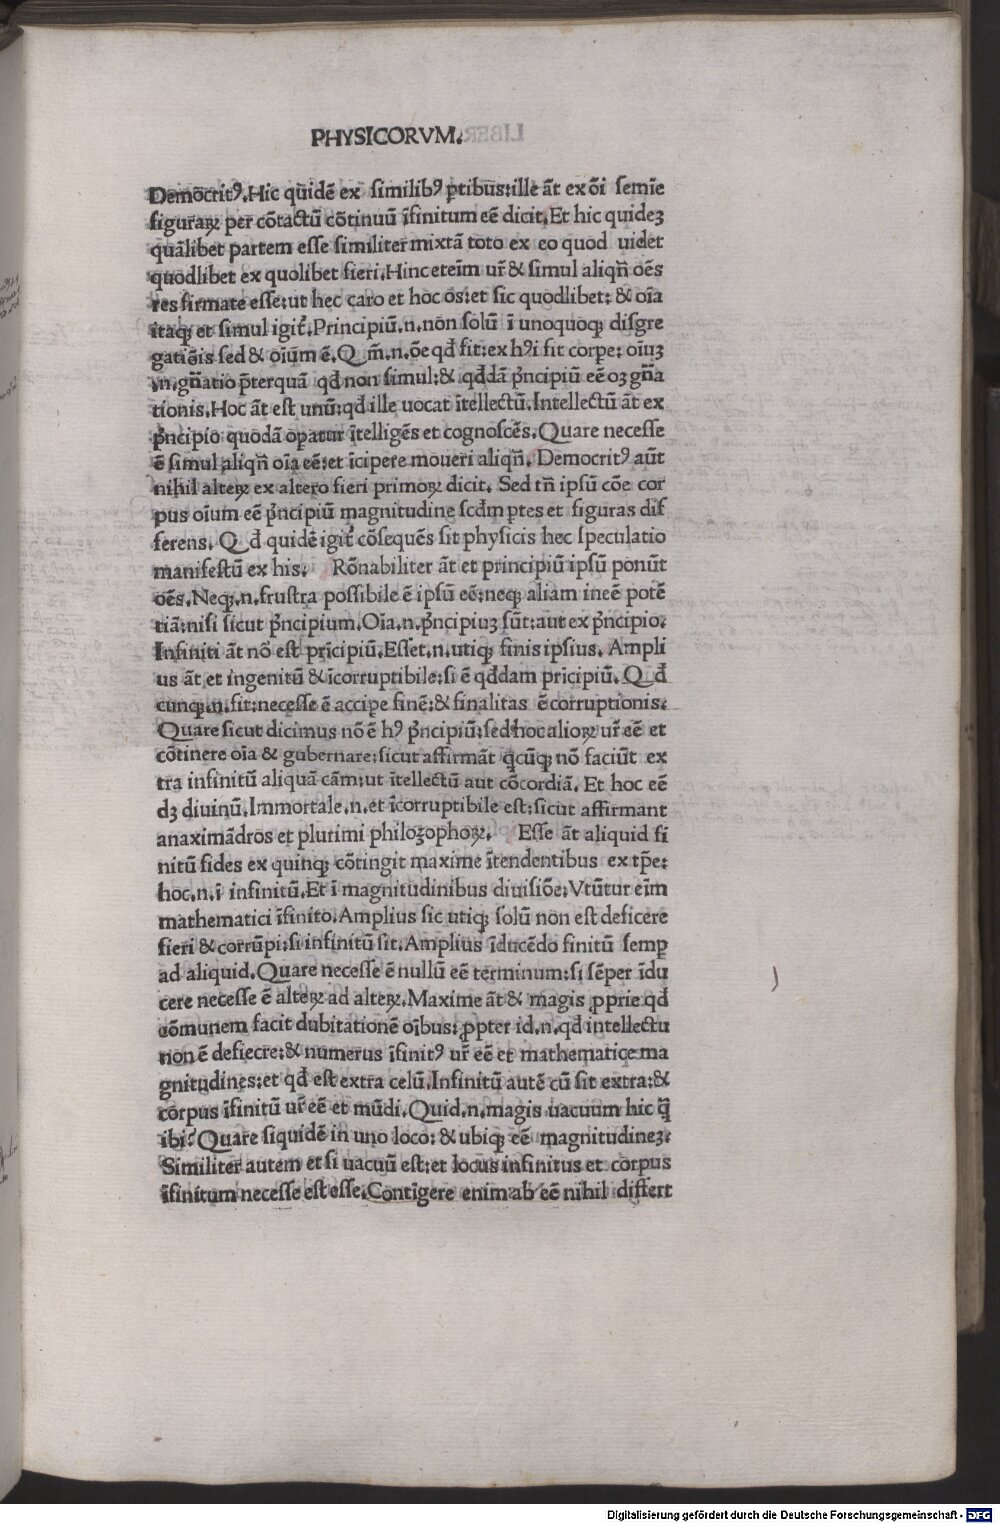 PHYSICORVM.
Democritꝰ. Hic quidē ex similibꝰ ꝑtibus: ille āt ex oī semīe
figuraꝝ per cōtactū cōtinuū īfinitum eē dicit. Et hic quideꝫ
quālibet partem esse similiter mixtā toto ex eo quod uidet
quodlibet ex quolibet fieri. Hinc eteīm ur̄ & simul aliqn̄ oēs
res firmate esse: ut hec caro et hoc os: et sic quodlibet: & oīa
itaqꝫ et simul igit᷑. Principiū .n. non solū ī unoquoqꝫ disgre
gatiōis sed & oīum ē. Qm̄ .n. ōe qd̄ fit: ex hꝰi fit corpe: oīuꝫ
.n. gn̄atio p̄terquā qd̄ non simul: & qd̄dā p̄ncipiū eē oꝫ gn̄a
tionis. Hoc āt est unū: qd̄ ille uocat ītellectū. Intellectū āt ex
p̄ncipio quodā opatur ītelligēs et cognoscēs. Quare necesse
ē simul aliqn̄ oīa eē: et īcipere moueri aliqn̄. Democritꝰ aūt
nihil alteꝝ ex altero fieri primoꝝ dicit. Sed tn̄ ipsū cōe cor
pus oīum eē p̄ncipiū magnitudine scd̄m ꝑtes et figuras dif
ferens. Qd̄ quidē igit᷑ cōsequēs sit physicis hec speculatio
manifestū ex his. Rōnabiliter āt et principiū ipsū ponūt
oēs. Neqꝫ .n. frustra possibile ē ipsū eē: neqꝫ aliam ineē potē
tiā: nisi sicut p̄ncipium. Oīa .n. p̄ncipiuꝫ sūt: aut ex p̄ncipio.
Infiniti āt nō est pricipiū. Esset .n. utiqꝫ finis ipsius. Ampli
us āt et ingenitū & īcorruptibile: si ē qd̄dam pricipiū. Qd̄
cunqꝫ .n. fit: necesse ē accipe finē: & finalitas ē corruptionis.
Quare sicut dicimus nō ē hꝰ p̄ncipiū: sed hoc alioꝝ ur̄ eē et
cōtinere oīa & gubernare: sicut affirmāt qcūqꝫ nō faciūt ex
tra infinitū aliquā cām: ut ītellectū aut cōcordiā. Et hoc eē
dꝫ diuinū. Immortale .n. et īcorruptibile est: sicut affirmant
anaximādros et plurimi philoꝫophoꝝ. Esse āt aliquid fi
nitū fides ex quinqꝫ cōtingit maxime ītendentibus ex tp̄e:
hoc .n. ī infinitū. Et ī magnitudinibus diuisiōe. Vtūtur eīm
mathematici īfinito. Amplius sic utiqꝫ solū non est deficere
fieri & corrūpi: si infinitū sit. Amplius īducēdo finitū semꝑ
ad aliquid. Quare necesse ē nullū eē terminum: si sēper īdu
cere necesse ē alteꝝ ad alteꝝ. Maxime āt & magis ꝓprie qd̄
cōmunem facit dubitationē oībus: ꝓpter id .n. qd̄ intellectu
non ē defiecre: & numerus īfinitꝰ ur̄ eē et mathematice ma
gnitudines: et qd̄ est extra celū. Infinitū autē cū sit extra: &
corpus īfinitū ur̄ eē et mūdi. Quid .n. magis uacuum hic q̄
ibi? Quare siquidē in uno loco: & ubiqꝫ eē magnitudineꝫ.
Similiter autem et si uacuū est: et locus infinitus et corpus
īfinitum necesse est esse. Contīgere enim ab eē nihil differt
Digitalisierung gefördert durch die Deutsche Forschungsgemeinschaft - DFG